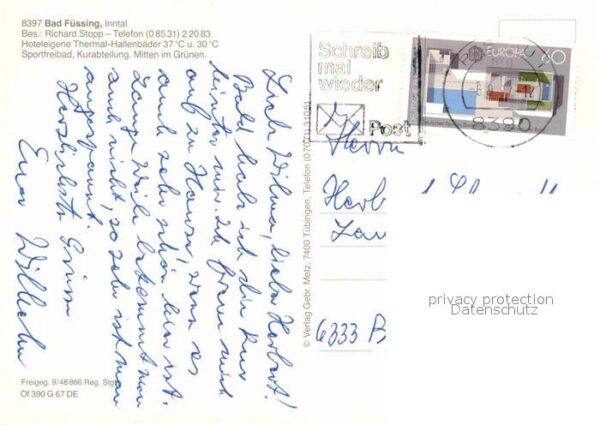 8397 Bad Füssing, Inntal
Bes.: Richard Stopp – Telefon (0 85 31) 2 20 83
Hoteleigene Thermal-Hallenbäder 37 °C u. 30 °C
Sportfreibad, Kurabteilung. Mitten im Grünen.
Liebe Wilma, lieber Herbert!
Bald habe ich die Kur
hinter mir. Ich freue mich
auf zu Hause, wenn es
auch sehr schön hier ist.
Lange Weile bekommt man
auch nicht, so sehr ist man
angespannt.
Herzlichste Grüße
Euer Wilhelm
Freigeg. 9/48 866 Reg. Stgt.
Of 390 G 67 DE
© Verlag Gebr. Metz, 7400 Tübingen, Telefon (0 70 71) 3 10 51
Schreib
mal
wieder
Post
EUROPA 60
8390
Herrn
Herb
6333 B
privacy protection
Datenschutz